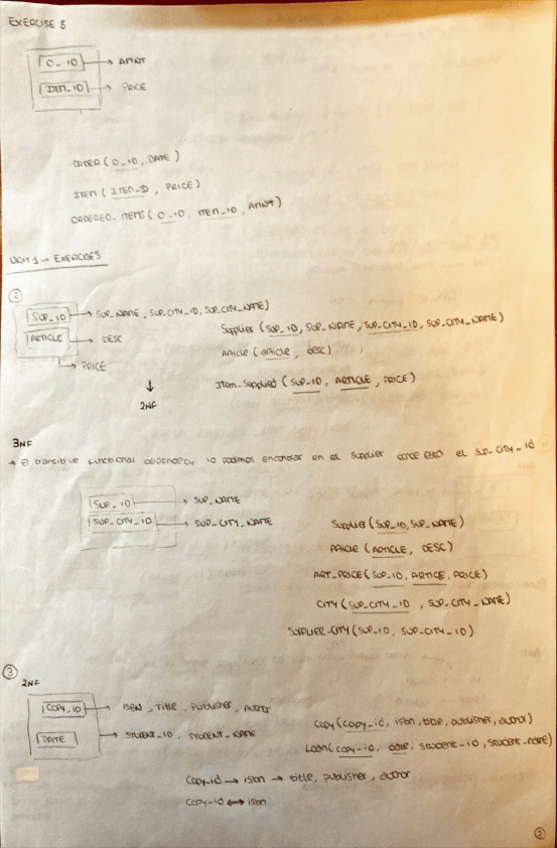 EXERCISE 5
O_ID → AMNT
ITEM_ID → PRICE
ORDER (O_ID, DATE)
ITEM (ITEM_ID, PRICE)
ORDERED_ITEMS (O_ID, ITEM_ID, AMNT)
UNIT 1 - EXERCISES
②
SUP_ID → SUP_NAME, SUP_CITY_ID, SUP_CITY_NAME
ARTICLE → DESC
→ PRICE
↓
2NF
Supplier (SUP_ID, SUP_NAME, SUP_CITY_ID, SUP_CITY_NAME)
Article (article, desc)
Item_Supplied (SUP_ID, ARTICLE, PRICE)
3NF
→ El transitive functional dependecy lo podemos encontrar en el supplier donde está el sup_city_id
SUP_ID → SUP_NAME
SUP_CITY_ID → SUP_CITY_NAME
Supplier (SUP_ID, SUP_NAME)
Article (ARTICLE, DESC)
ART_PRICE (SUP_ID, ARTICE, PRICE)
CITY (SUP_CITY_ID, SUP_CITY_NAME)
SUPPLIER_CITY (SUP_ID, SUP_CITY_ID)
③
2NF
COPY_ID → ISBN, Title, Publisher, Author
DATE → STUDENT_ID, STUDENT_NAME
Copy (copy_id, isbn, title, publisher, author)
Loan (copy_id, date, student_id, student_name)
Copy_id → isbn → title, publisher, author
Copy_id ↔ isbn
②